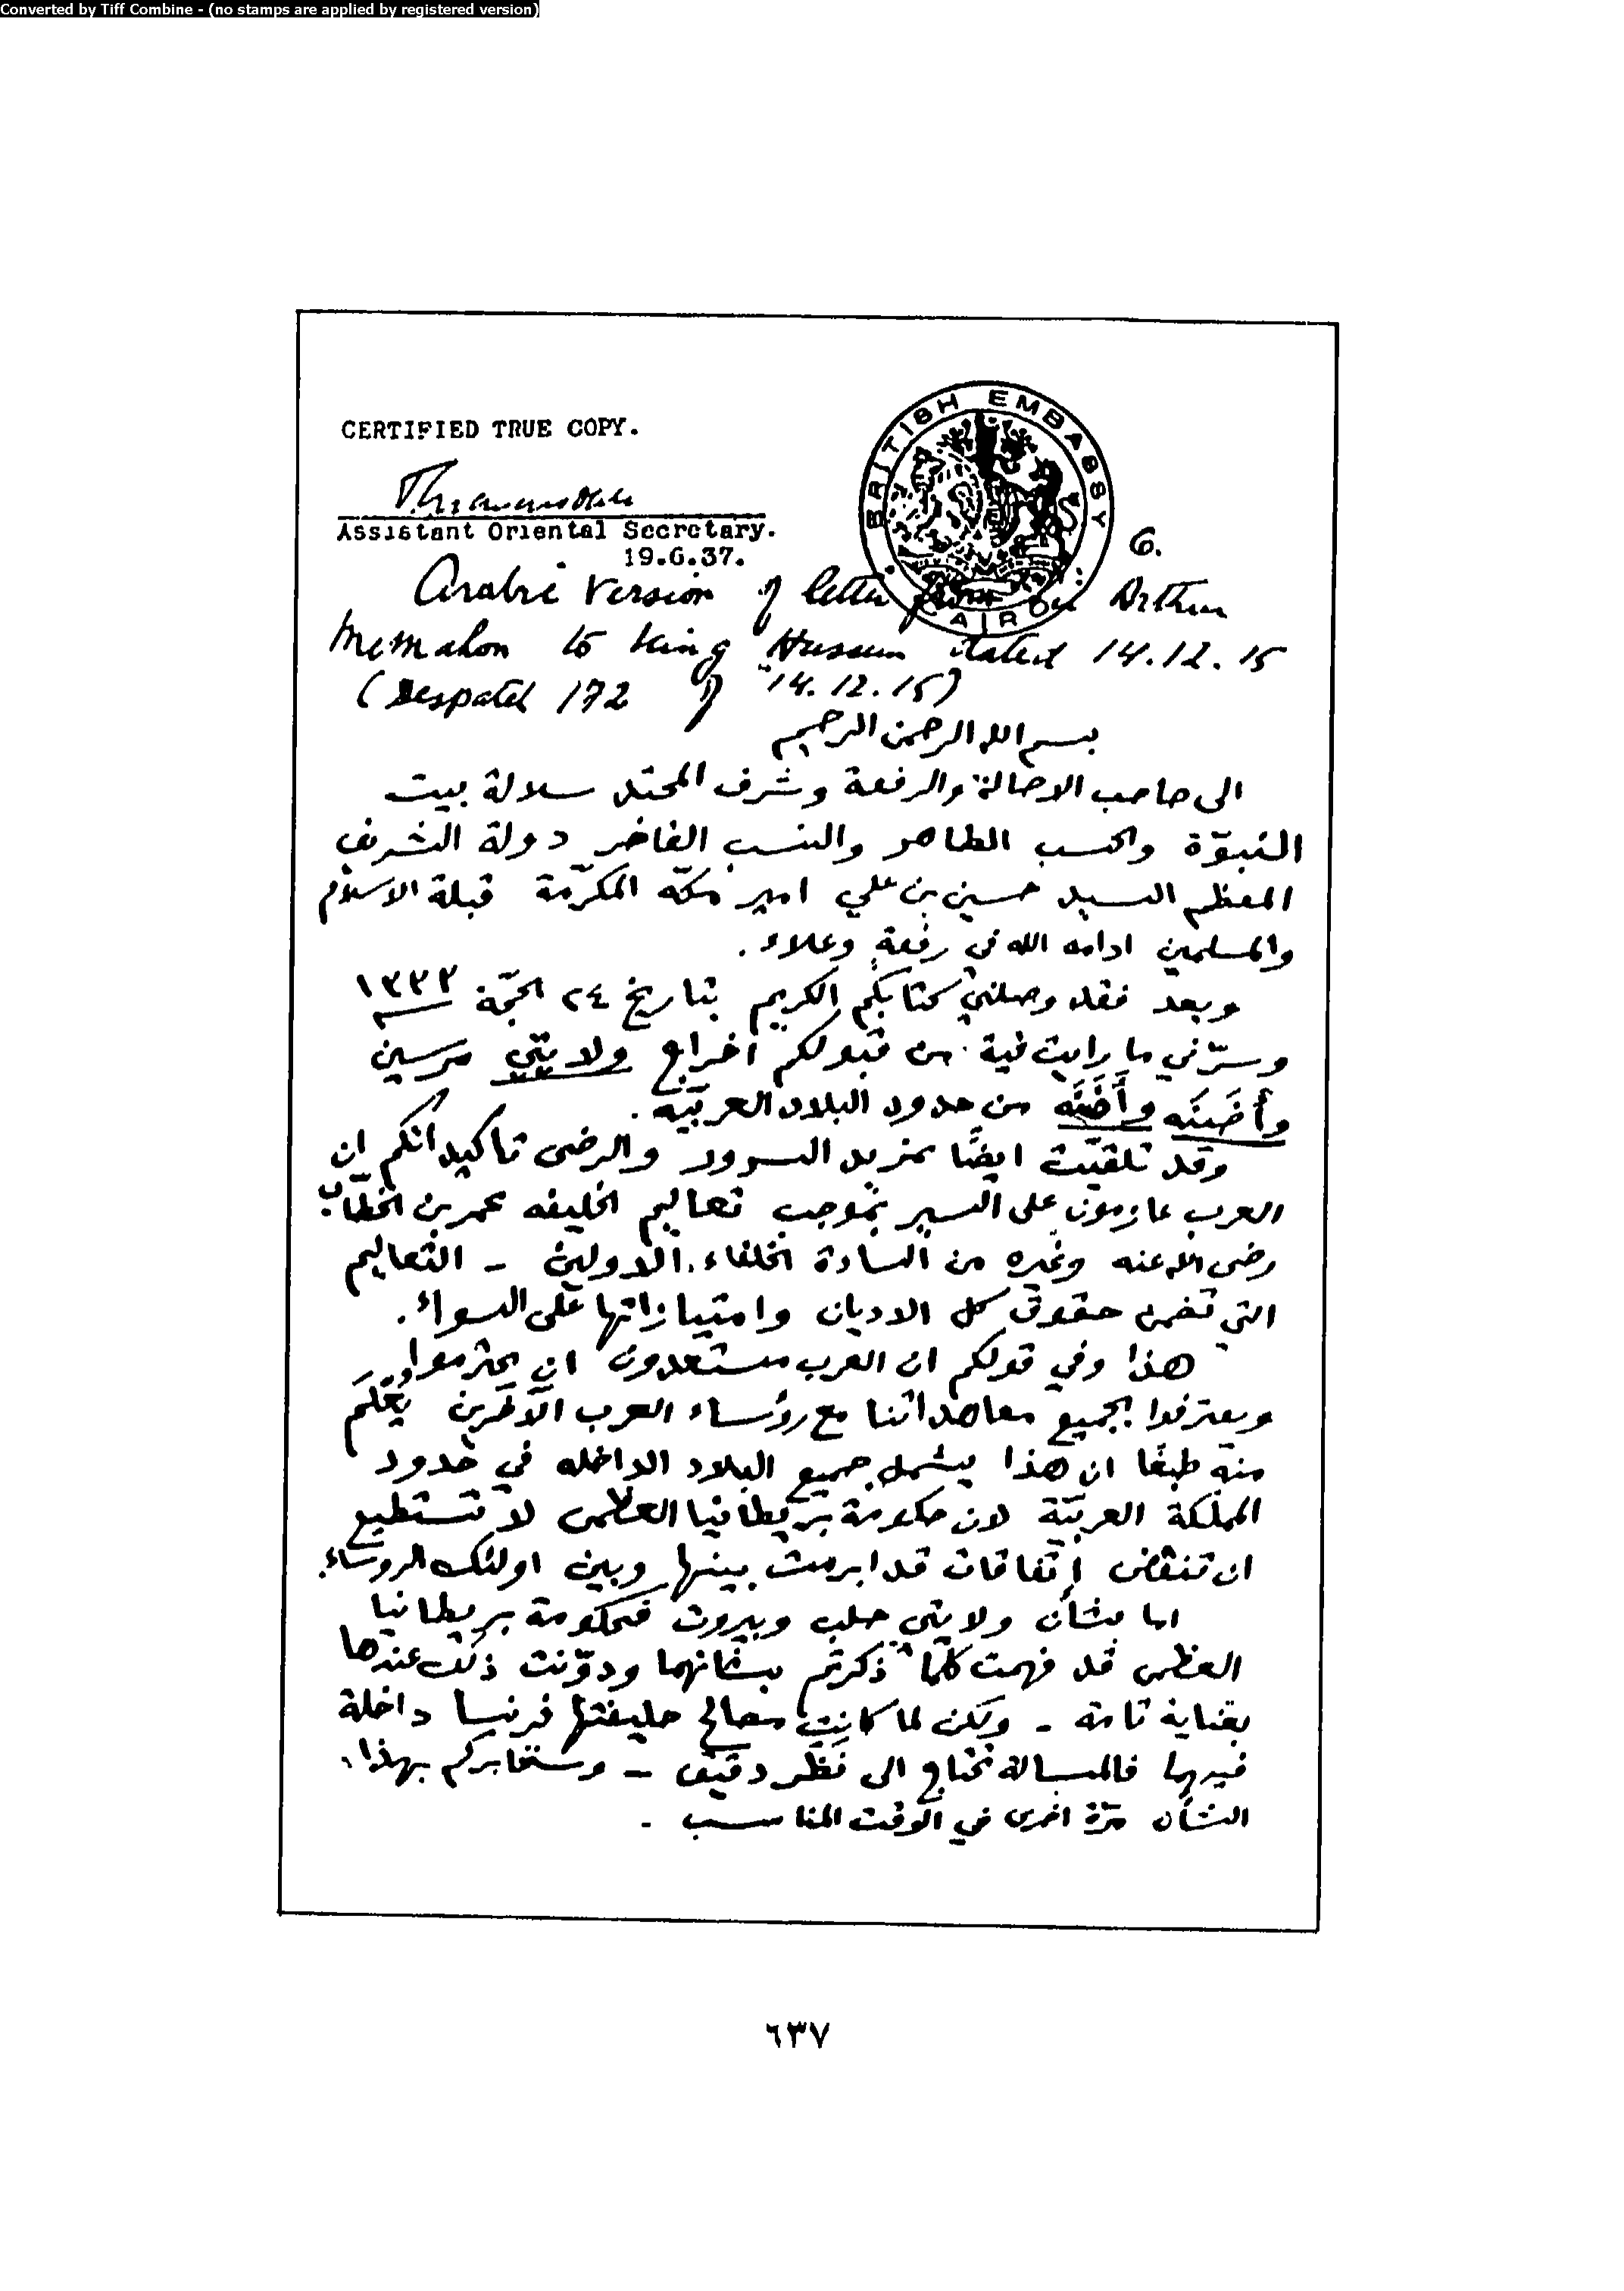 Converted by Tiff Combine - (no stamps are applied by registered version)
CERTIFIED TRUE COPY.
BRITISH EMBASSY
CAIRO
Assistant Oriental Secretary.
19.6.37.
6.
Arabic version of letter from Sir Arthur
McMahon to King Hussein dated 14.12.15
(Despatch 172 of 14.12.15)
بسم الله الرحمن الرحيم
الى صاحب الاصالة والرفعة وشرف المحتد سلالة بيت
النبوّة والحسب الطاهر والنسب الفاخر دولة الشريف
المعظم السيد حسين بن علي امير مكّه المكرّمة قبلة الاسلام
والمسلمين ادامه الله في رفعةٍ وعلاء .
وبعد فقد وصلني كتابكم الكريم بتاريخ ٢٤ الحجّة ١٣٣٣
وسرّني ما رايت فية من قبولكم اخراج ولايتي مرسين
وأضَنَه وأَضَنَه من حدود البلاد العربيّه .
وقد تلقيّت ايضًا بمزيد السرور والرضى تاكيداتكم ان
العرب عازمون على السير بموجب تعاليم الخليفه عمر بن الخطّاب
رضى الله عنه وغيره من السادة الخلفاء الاولين - التعاليم
التي تضمن حقوق كل الاديان وامتيازاتها على السواء .
هذا وفي قولكم ان العرب مستعدون ان يحترموا
ويعترفوا بجميع معاهداتنا مع رؤساء العرب الآخرين يُعْلَم
منه طبعًا ان هذا يشمل جميع البلاد الداخله في حدود
المملكة العربيّة لان حكومة بريطانيا العظمى لا تستطيع
ان تنقض إتفاقات قد ابرمت بينها وبين اولئك الروساء .
اما بشأن ولايتي حلب وبيروت فحكومة بريطانيا
العظمى قد فهمت كلما ذكرتم بشانهما ودوّنت ذلك عندها
بعناية تامه - ولكن لما كانت مصالح حليفتها فرنسا داخلة
فيهما فالمسالة تحتاج الى نظر دقيق - وسنخابركم بهذا
الشأن مرّة اخرى في الوقت المناسب .
٦٣٧